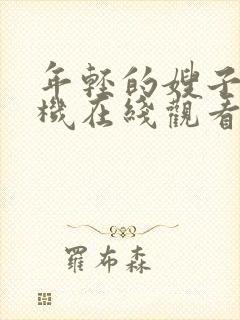 年轻的嫂子
機在綫觀看
羅布森